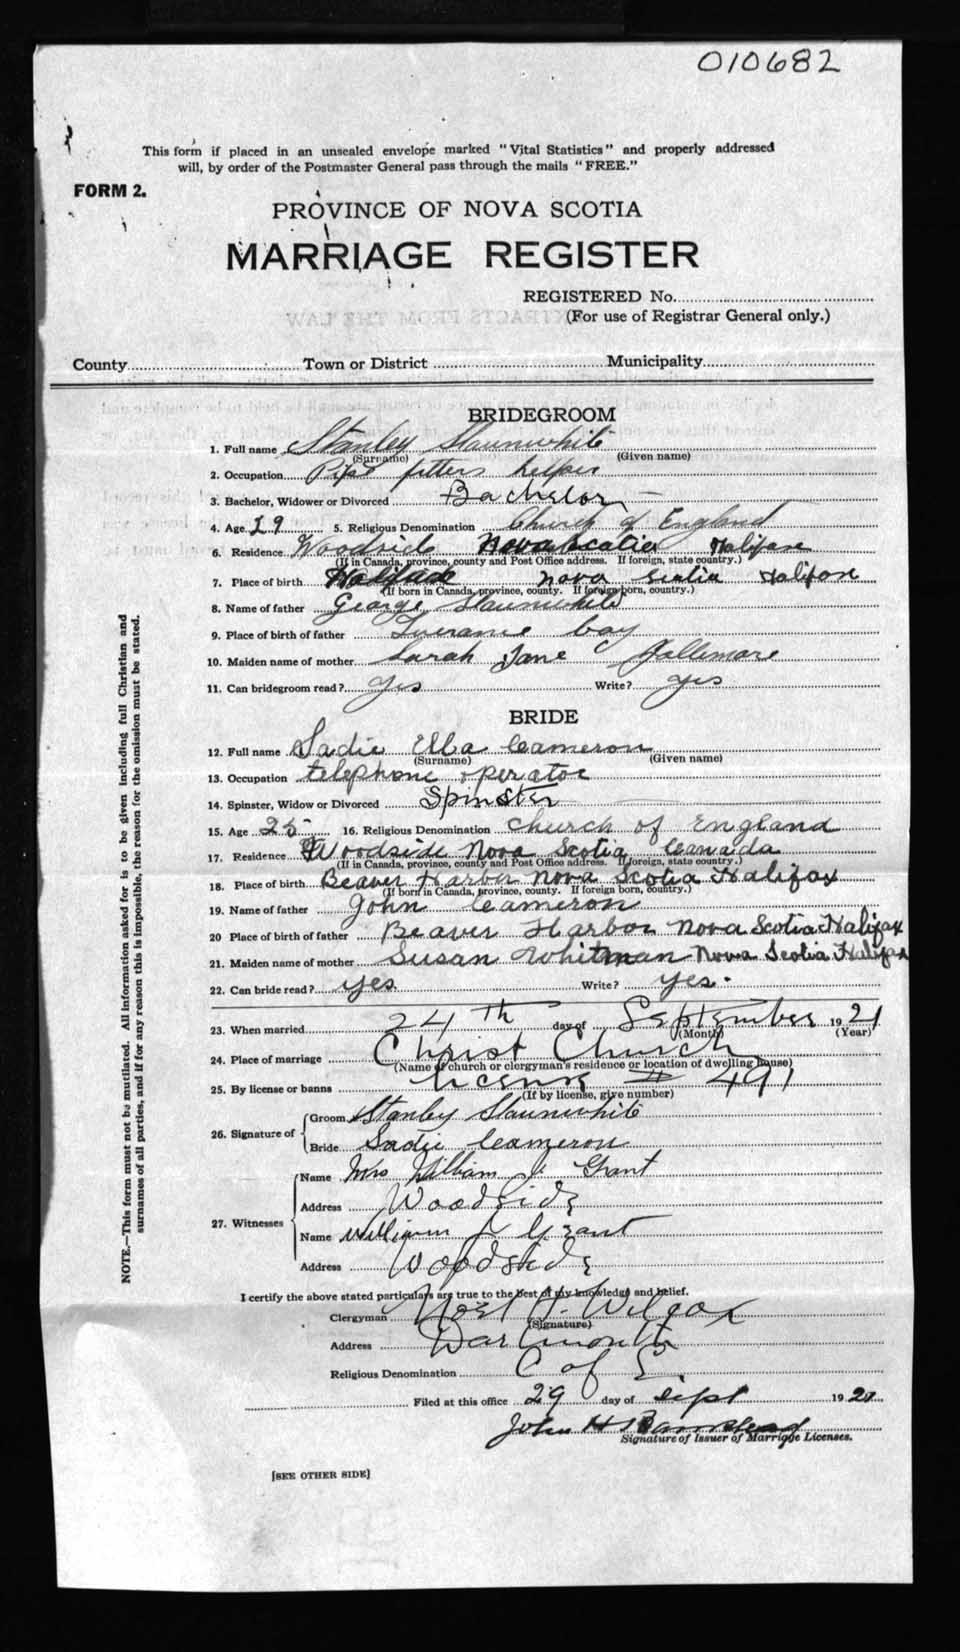 010682
This form if placed in an unsealed envelope marked "Vital Statistics" and properly addressed
will, by order of the Postmaster General pass through the mails "FREE."
FORM 2.
PROVINCE OF NOVA SCOTIA
MARRIAGE REGISTER
REGISTERED No.
(For use of Registrar General only.)
County Town or District Municipality
BRIDEGROOM
1. Full name Stanley Slaunwhite
(Surname) (Given name)
2. Occupation Pipe fitters helper
3. Bachelor, Widower or Divorced Bachelor
4. Age 29 5. Religious Denomination Church of England
6. Residence Woodside Nova Scotia Halifax
(If in Canada, province, county and Post Office address. If foreign, state country.)
7. Place of birth Halifax Nova Scotia Halifax
(If born in Canada, province, county. If foreign born, country.)
8. Name of father George Slaunwhite
9. Place of birth of father bay
10. Maiden name of mother Sarah Jane
11. Can bridegroom read? yes Write? yes
BRIDE
12. Full name Sadie Ella Cameron
(Surname) (Given name)
13. Occupation telephone operator
14. Spinster, Widow or Divorced Spinster
15. Age 25 16. Religious Denomination church of England
17. Residence Woodside Nova Scotia Canada
(If in Canada, province, county and Post Office address. If foreign, state country.)
18. Place of birth Beaver Harbor Nova Scotia Halifax
(If born in Canada, province, county. If foreign born, country.)
19. Name of father John Cameron
20 Place of birth of father Beaver Harbor Nova Scotia Halifax
21. Maiden name of mother Susan Whitman Nova Scotia Halifax
22. Can bride read? yes Write? yes.
23. When married 24th day of September 1921
(Month) (Year)
24. Place of marriage Christ Church
(Name of church or clergyman's residence or location of dwelling house)
25. By license or banns license # 491
(If by license, give number)
26. Signature of
Groom Stanley Slaunwhite
Bride Sadie Cameron
27. Witnesses
Name Mrs William J Grant
Address Woodside
Name William J Grant
Address Woodside
I certify the above stated particulars are true to the best of my knowledge and belief.
Clergyman Noel H. Wilcox
(Signature)
Address Dartmouth
Religious Denomination C of E.
Filed at this office 29 day of Sept 1921
John H
Signature of Issuer of Marriage Licenses.
[SEE OTHER SIDE]
NOTE.—This form must not be mutilated. All information asked for is to be given including full Christian and
surnames of all parties, and if for any reason this is impossible, the reason for the omission must be stated.